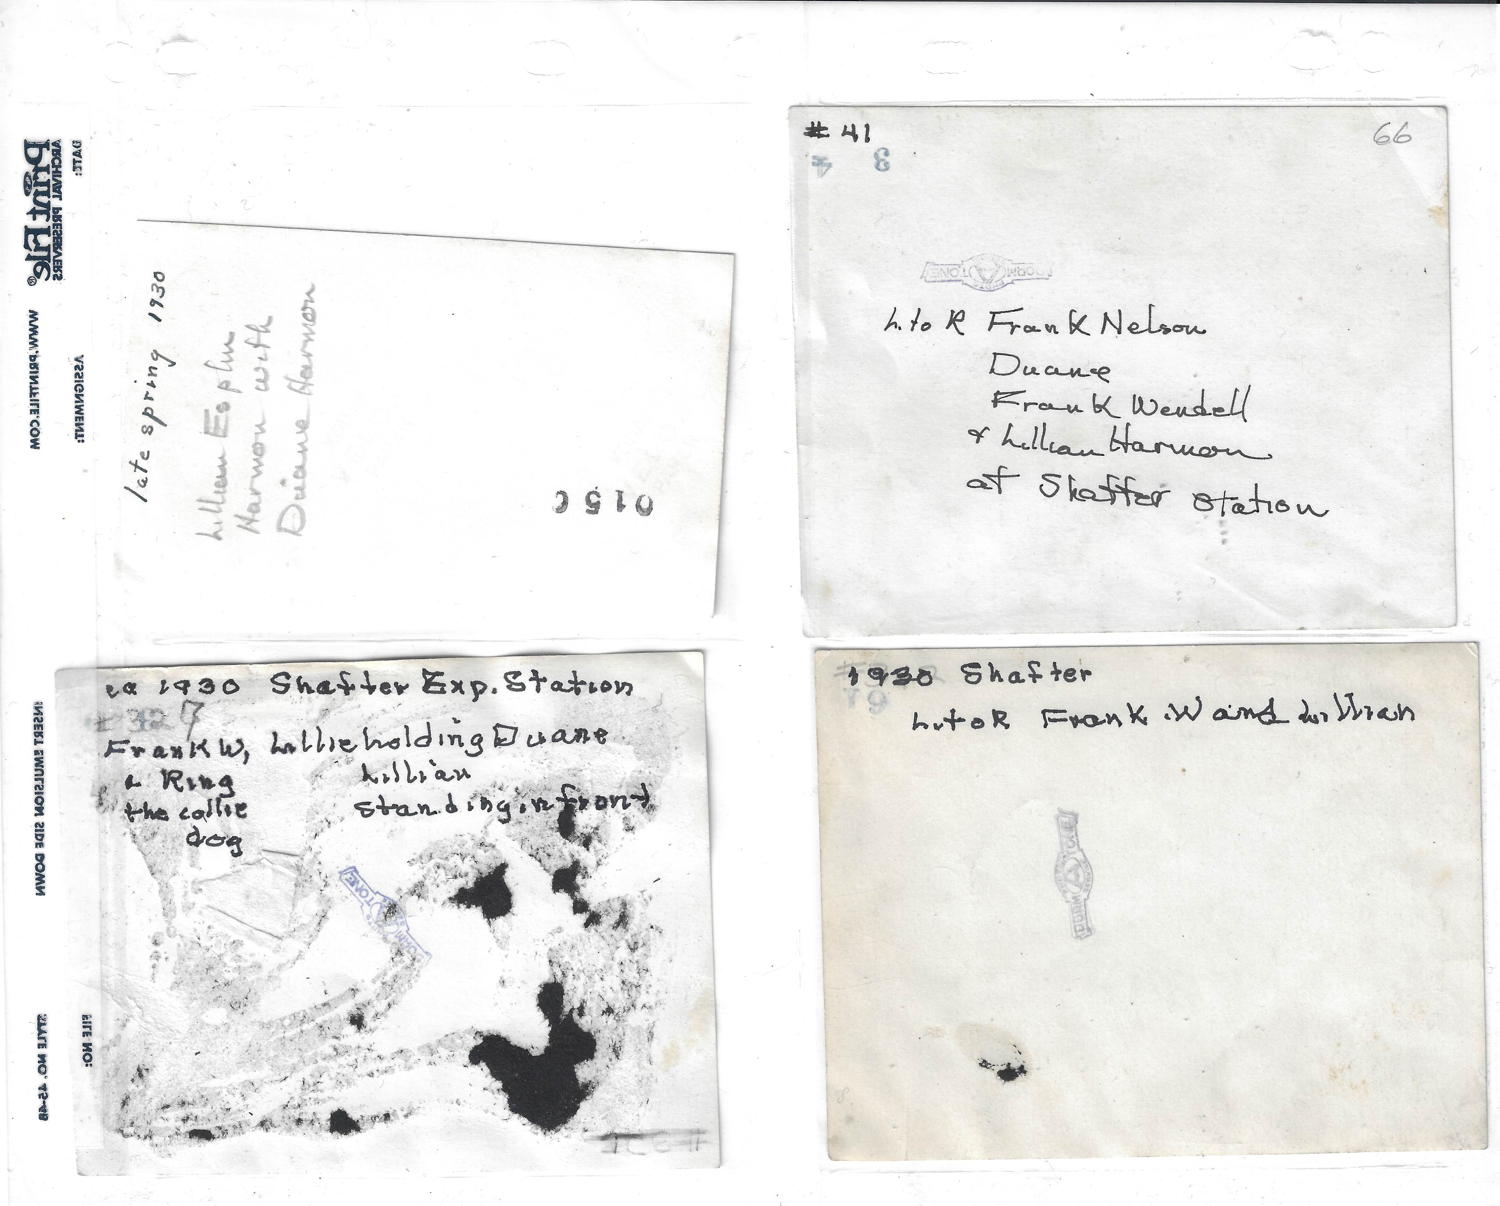 DATE:
ARCHIVAL PRESERVERS
Print File®
WWW.PRINTFILE.COM
ASSIGNMENT:
INSERT EMULSION SIDE DOWN
STYLE NO. 45-4B
FILE NO:
late spring 1930
Lillian Esplin
Harmon with
Duane Harmon
015
# 41
66
3 4
DORM TONE
L. to R Frank Nelson
Duane
Frank Wendell
& Lillian Harmon
at Shaffer Station
ca 1930 Shafter Exp. Station
7
Frank W, Lillie holding Duane
& Ring Lillian
the collie standing in front
dog
1930 Shafter
L. to R Frank W and Lillian